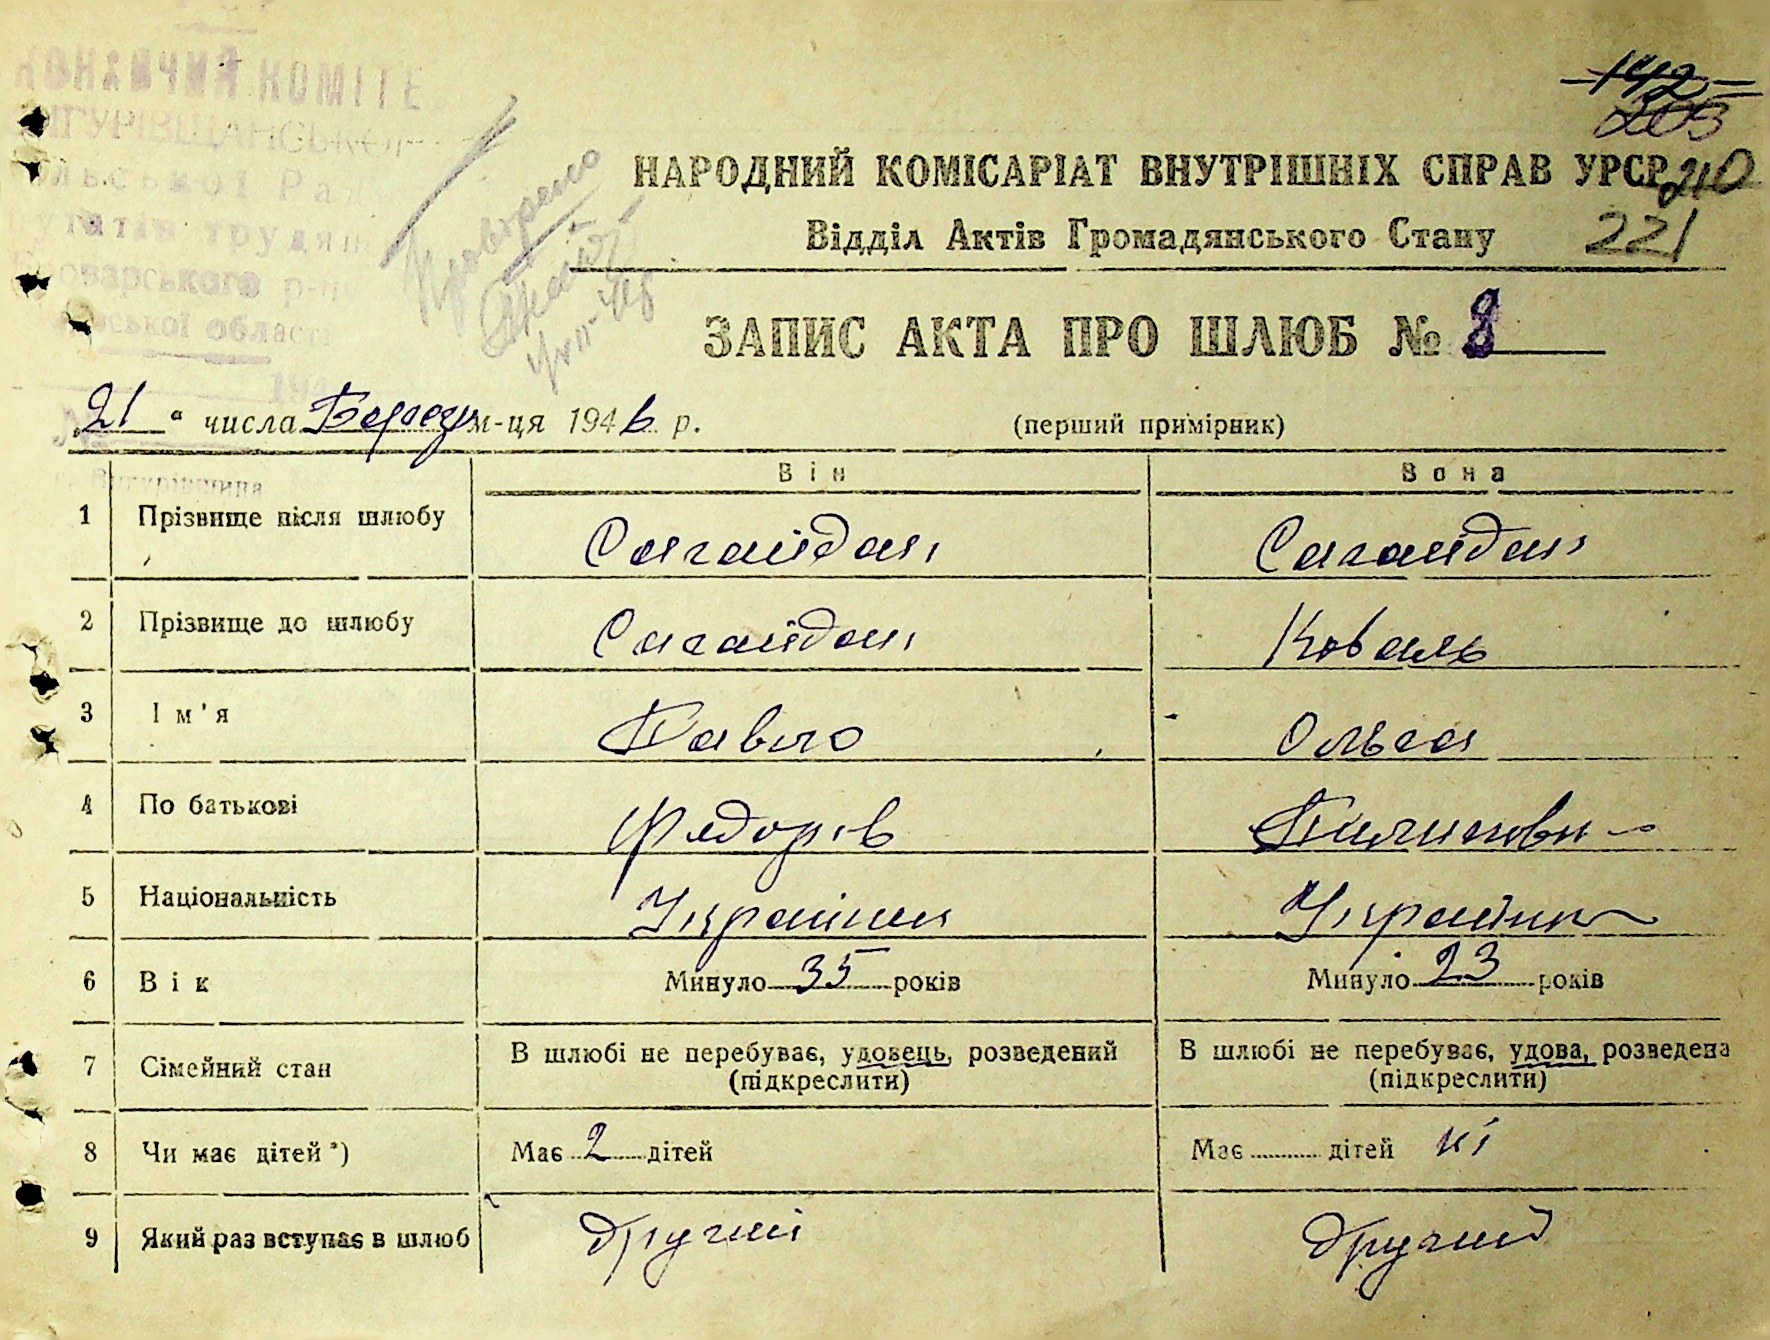 КОМІТЕ
трудян
р-ну
області
Проверено
142
203
НАРОДНИЙ КОМІСАРІАТ ВНУТРІШНІХ СПРАВ УРСР 210
Відділ Актів Громадянського Стану 221
ЗАПИС АКТА ПРО ШЛЮБ № 8
„21“ числа Березн м-ця 1946 р. (перший примірник)
Він Вона
1 Прізвище після шлюбу Сагайдак Сагайдак
2 Прізвище до шлюбу Сагайдак Коваль
3 Ім'я Павло Ольга
4 По батькові Федорів
5 Національність Українец Українк
6 Вік Минуло 35 років Минуло 23 років
7 Сімейний стан В шлюбі не перебуває, удовець, розведений (підкреслити) В шлюбі не перебуває, удова, розведена (підкреслити)
8 Чи має дітей*) Має 2 дітей Має дітей ні
9 Який раз вступає в шлюб другий другий